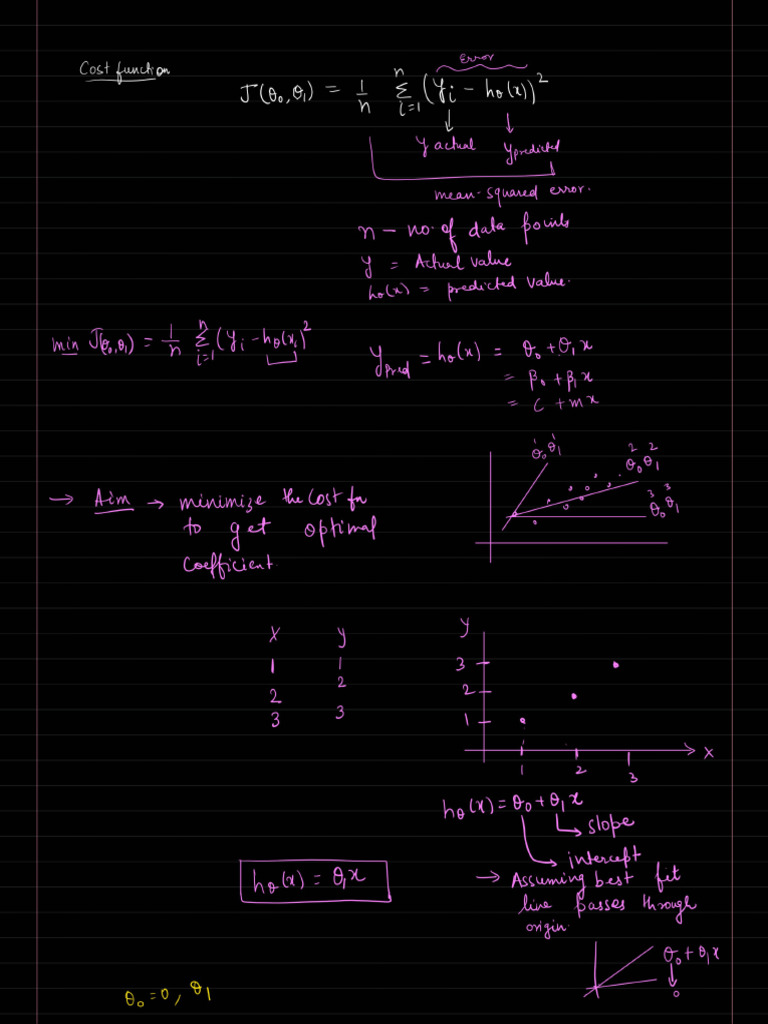 Cost function
Error
J(θ₀, θ₁) = 1/n Σ i=1 n (yi - hθ(x))²
y actual y predicted
mean-squared error.
n - no. of data points
y = Actual value
hθ(x) = predicted value.
min J(θ₀, θ₁) = 1/n Σ i=1 n (yi - hθ(xi))²
y pred = hθ(x) = θ₀ + θ₁x
= β₀ + β₁x
= c + mx
θ₀¹ θ₁¹
θ₀² θ₁²
θ₀³ θ₁³
→ Aim → minimize the cost fn
to get optimal
coefficient.
x y
1 1
2 2
3 3
y
3
2
1
x
1 2 3
hθ(x) = θ₀ + θ₁x
slope
intercept
→ Assuming best fit
line passes through
origin.
hθ(x) = θ₁x
θ₀ + θ₁x
0
θ₀ = 0, θ₁